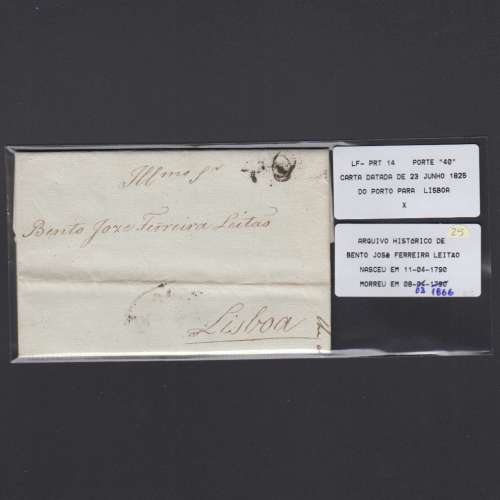 Illmo Sr
40
Bento Joze Ferreira Leitão
Lisboa
LF- PRT 14 PORTE "40"
CARTA DATADA DE 23 JUNHO 1825
DO PORTO PARA LISBOA
X
25
ARQUIVO HISTÓRICO DE
BENTO JOSé FERREIRA LEITAO
NASCEU EM 11-04-1790
MORREU EM 08-04-1790
03 1866